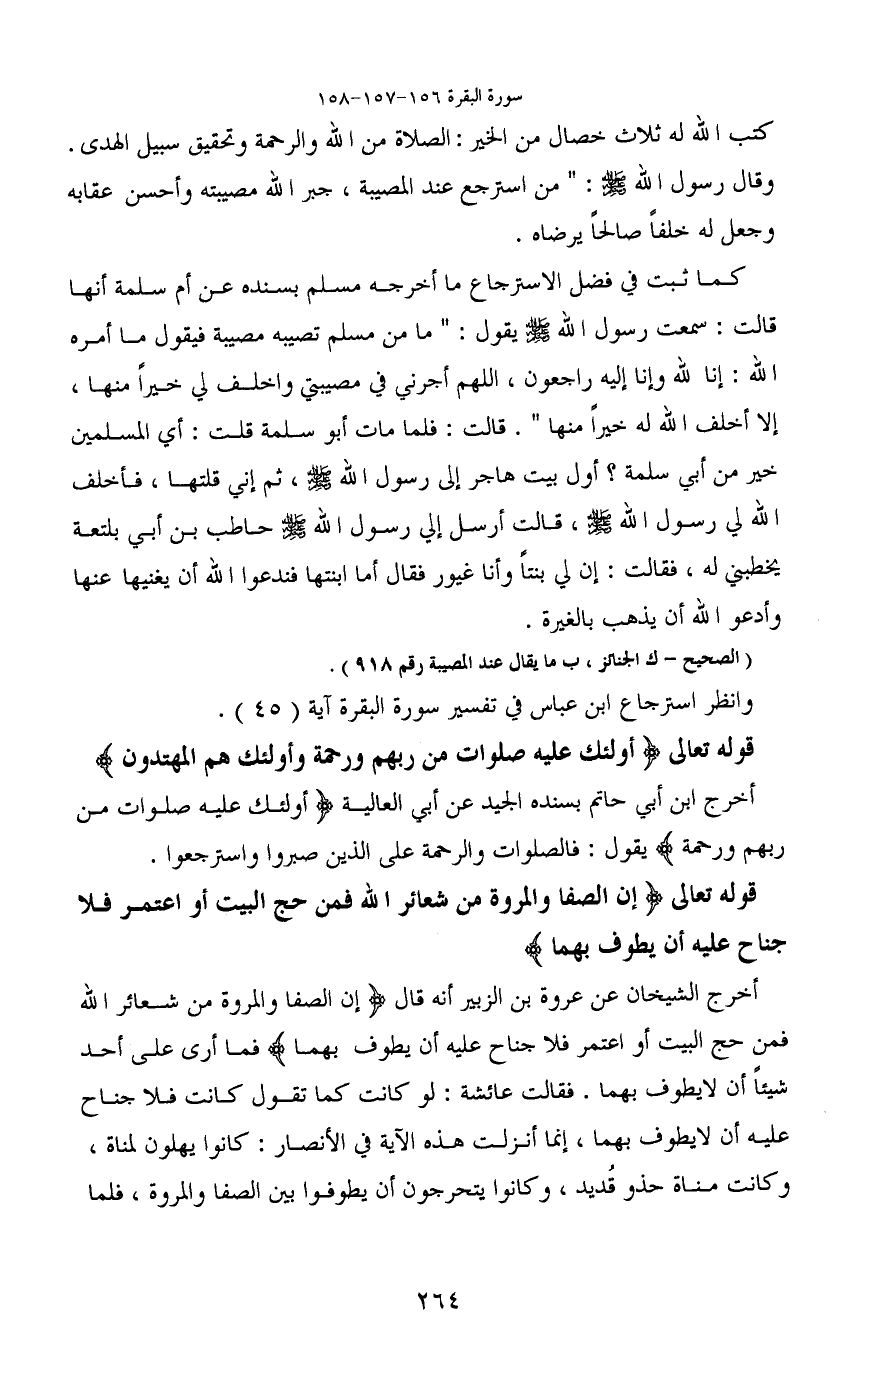 سورة البقرة ١٥٦-١٥٧-١٥٨
كتب الله له ثلاث خصال من الخير : الصلاة من الله والرحمة وتحقيق سبيل الهدى .
وقال رسول الله ﷺ : " من استرجع عند المصيبة ، جبر الله مصيبته وأحسن عقابه
وجعل له خلفاً صالحاً يرضاه .
كما ثبت في فضل الاسترجاع ما أخرجه مسلم بسنده عن أم سلمة أنها
قالت : سمعت رسول الله ﷺ يقول : " ما من مسلم تصيبه مصيبة فيقول ما أمره
الله : إنا لله وإنا إليه راجعون ، اللهم أجرني في مصيبتي واخلف لي خيراً منها ،
إلا أخلف الله له خيراً منها " . قالت : فلما مات أبو سلمة قلت : أي المسلمين
خير من أبي سلمة ؟ أول بيت هاجر إلى رسول الله ﷺ ، ثم إني قلتها ، فأخلف
الله لي رسول الله ﷺ ، قالت أرسل إلي رسول الله ﷺ حاطب بن أبي بلتعة
يخطبني له ، فقالت : إن لي بنتاً وأنا غيور فقال أما ابنتها فندعوا الله أن يغنيها عنها
وأدعو الله أن يذهب بالغيرة .
( الصحيح - ك الجنائز ، ب ما يقال عند المصيبة رقم ٩١٨ ) .
وانظر استرجاع ابن عباس في تفسير سورة البقرة آية ( ٤٥ ) .
قوله تعالى ﴿ أولئك عليه صلوات من ربهم ورحمة وأولئك هم المهتدون ﴾
أخرج ابن أبي حاتم بسنده الجيد عن أبي العالية ﴿ أولئك عليه صلوات من
ربهم ورحمة ﴾ يقول : فالصلوات والرحمة على الذين صبروا واسترجعوا .
قوله تعالى ﴿ إن الصفا والمروة من شعائر الله فمن حج البيت أو اعتمر فلا
جناح عليه أن يطوف بهما ﴾
أخرج الشيخان عن عروة بن الزبير أنه قال ﴿ إن الصفا والمروة من شعائر الله
فمن حج البيت أو اعتمر فلا جناح عليه أن يطوف بهما ﴾ فما أرى على أحد
شيئاً أن لايطوف بهما . فقالت عائشة : لو كانت كما تقول كانت فلا جناح
عليه أن لايطوف بهما ، إنما أنزلت هذه الآية في الأنصار : كانوا يهلون لمناة ،
وكانت مناة حذو قُديد ، وكانوا يتحرجون أن يطوفوا بين الصفا والمروة ، فلما
٢٦٤